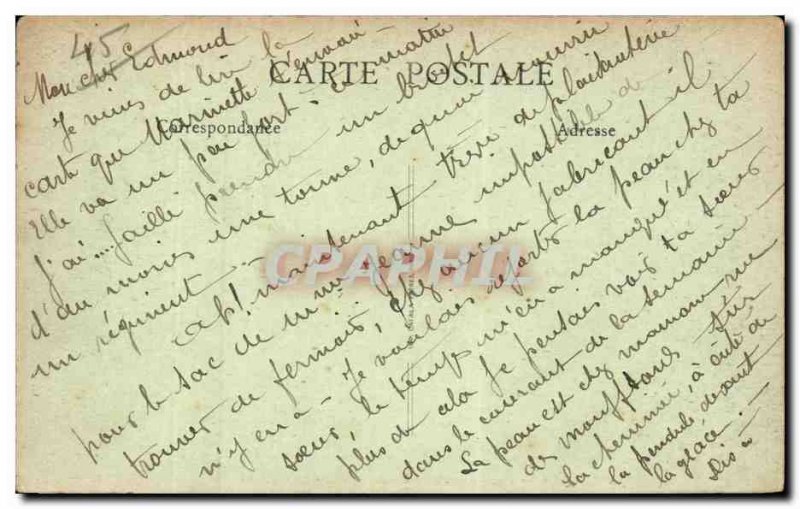 45
CARTE POSTALE
Correspondance
Adresse
CPAPHIL
Mon cher Edmond
Je viens de lire la
carte que Marinette t'envoie
Elle va un peu fort. ce matin
J'ai.... failli prendre un buffet
d'au moins une tonne, de quoi nourrir
un régiment -
Ah! maintenant trève de plaisanterie
pour le sac de Mme Jeanne impossible de
trouver de fermoir, chez aucun fabricant il
n'y en a - Je voulais reporter la peau chez ta
soeur, le temps m'en a manqué et en
plus de cela Je pensais voir ta soeur
dans le courant de la semaine -
La peau est chez maman rue
de Mouffons sur
la cheminée, à côté de
la pendule devant
la glace.
Dis à